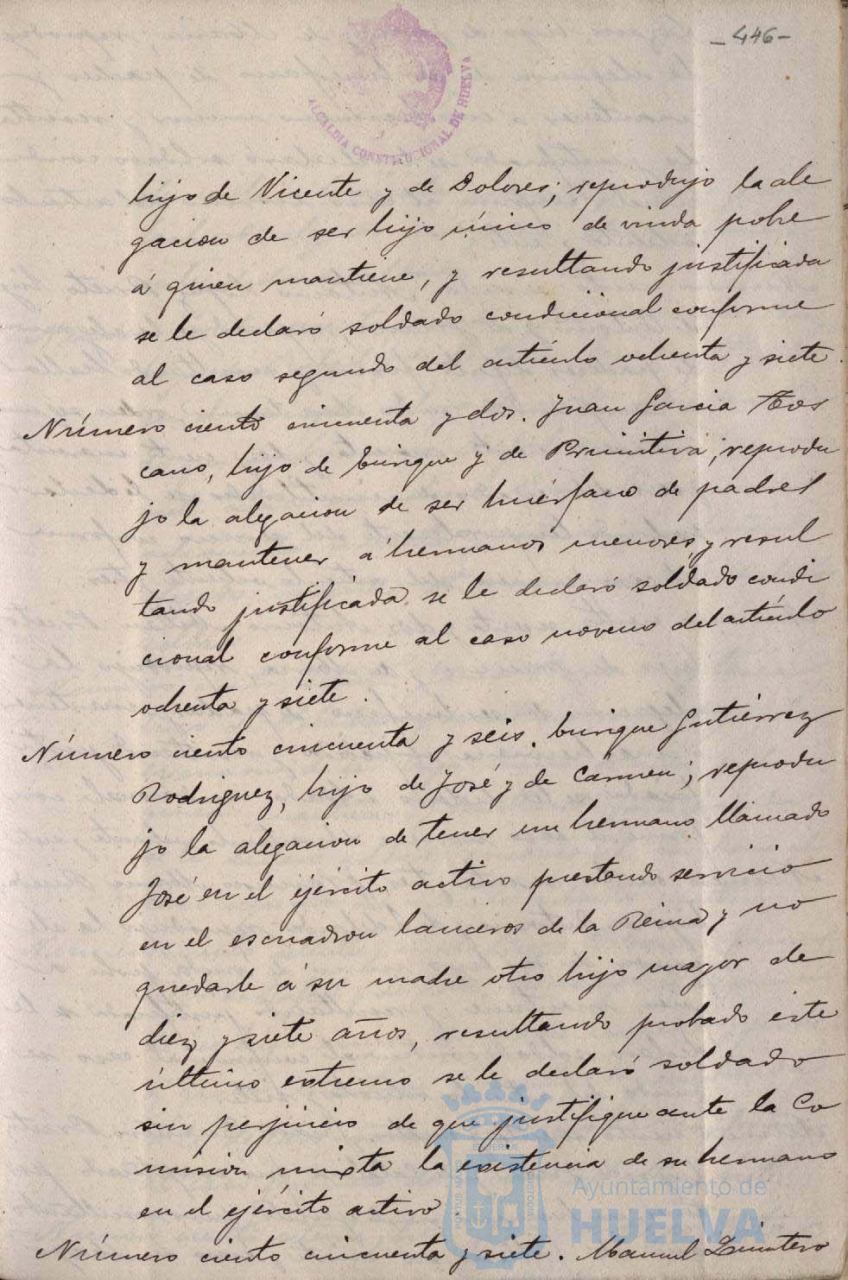 -446-
ALCALDIA CONSTITUCIONAL DE HUELVA
hijo de Vicente y de Dolores; reprodujo la ale
gacion de ser hijo único de viuda pobre
á quien mantiene, y resultando justificada
se le declaró soldado condicional conforme
al caso segundo del artículo ochenta y siete.
Número ciento cincuenta y dos. Juan Garcia Tos
cano, hijo de Enrique y de Primitiva; reprodu
jo la alegacion de ser huérfano de padres
y mantener á hermanos menores y resul
tando justificada se le declaró soldado condi
cional conforme al caso noveno del artículo
ochenta y siete.
Número ciento cincuenta y seis. Enrique Gutiérrez
Rodriguez, hijo de José y de Cármen; reprodu
jo la alegacion de tener un hermano llamado
José en el ejército activo prestando servicio
en el escuadron lanceros de la Reina y no
quedarle á su madre otro hijo mayor de
diez y siete años, resultando probado este
último extremo se le declaró soldado
sin perjuicio de que justifique ante la Co
mision mixta la existencia de su hermano
en el ejército activo.
Número ciento cincuenta y siete. Manuel Quintero
Ayuntamiento de
HUELVA